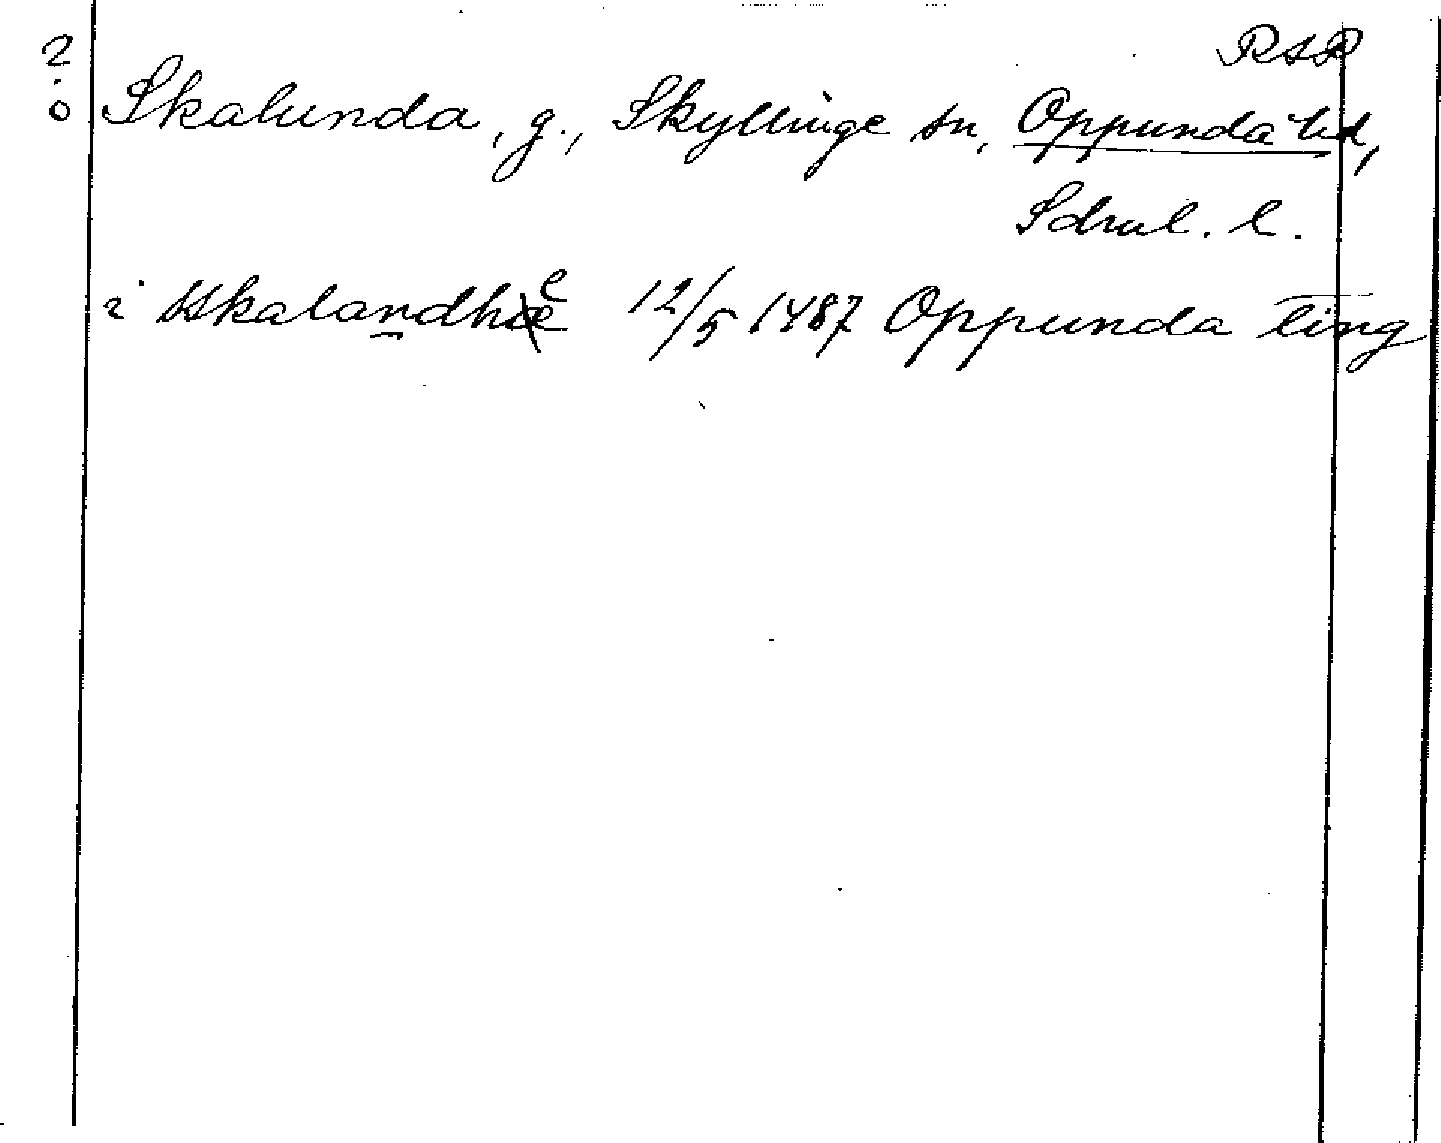 ? RAP
o Skalunda, g., Skyllinge sn, Oppunda hd,
Sdml. l.
i Skalandhe 12/5 1487 Oppunda ting